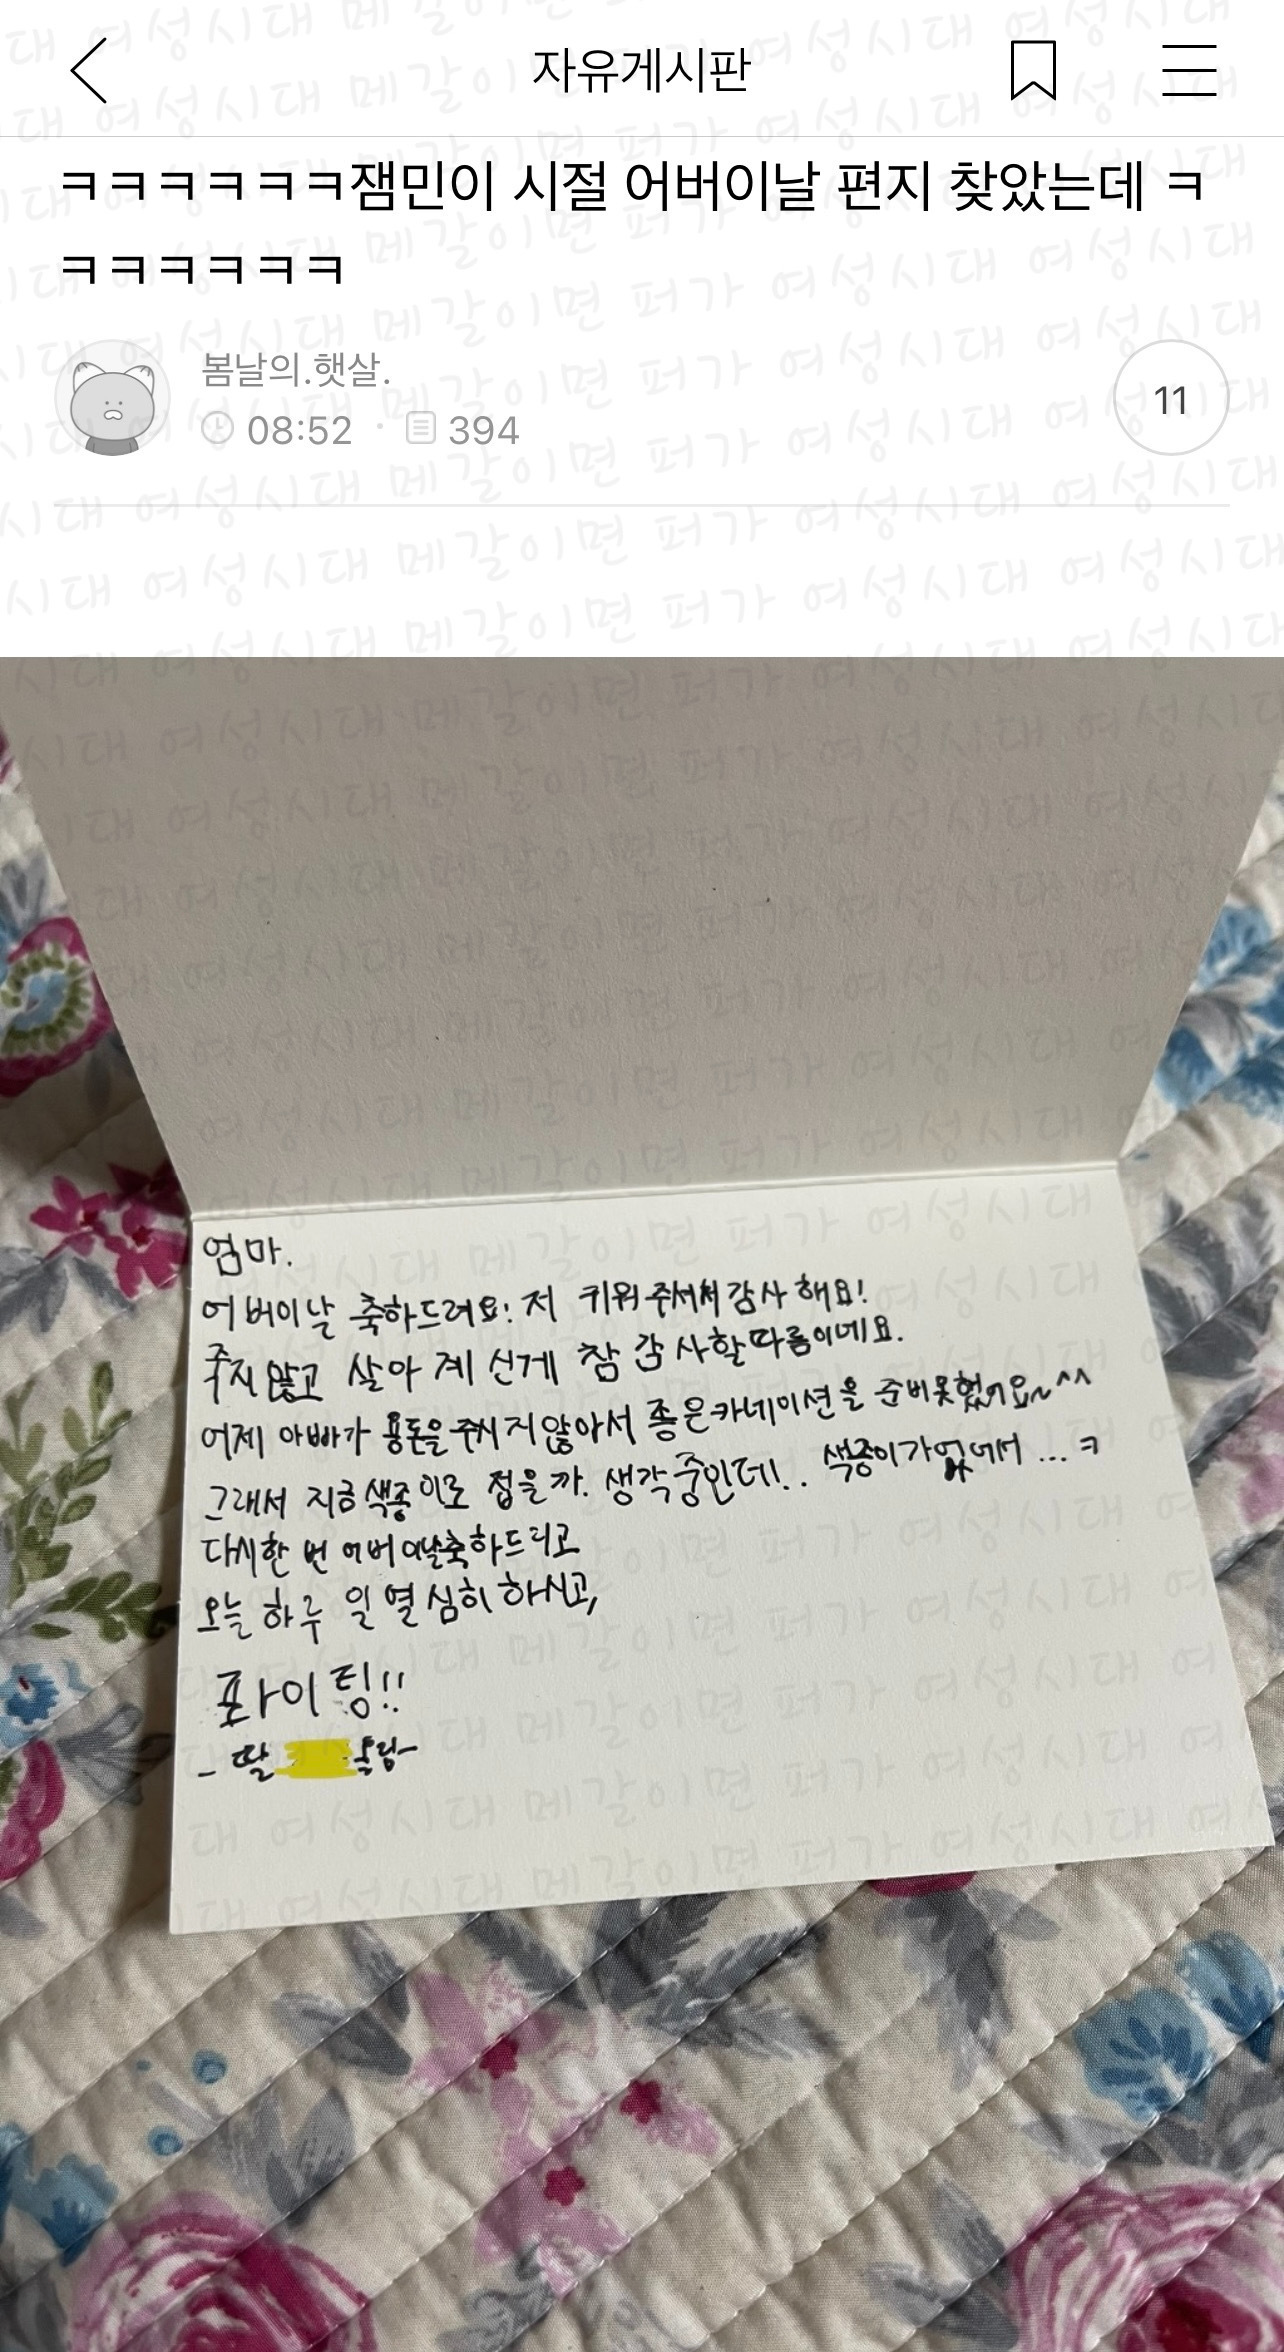 자유게시판
ㅋㅋㅋㅋㅋㅋ잼민이 시절 어버이날 편지 찾았는데 ㅋ
ㅋㅋㅋㅋㅋㅋ
봄날의.햇살.
08:52 · 394
11
엄마.
어버이날 축하드려요! 저 키워주셔서 감사해요!
죽지 않고 살아 계신게 참 감사할따름이네요.
어제 아빠가 용돈을 주시지않아서 좋은카네이션을 준비못했어요~^^
그래서 지금색종이로 접을까. 생각중인데!.. 색종이가없어서 ... ㅋ
다시한 번 어버이날축하드리고
오늘 하루 일 열심히 하시고,
퐈이팅!!
- 딸 올림-
여성시대 메갈이면 퍼가 여성시대